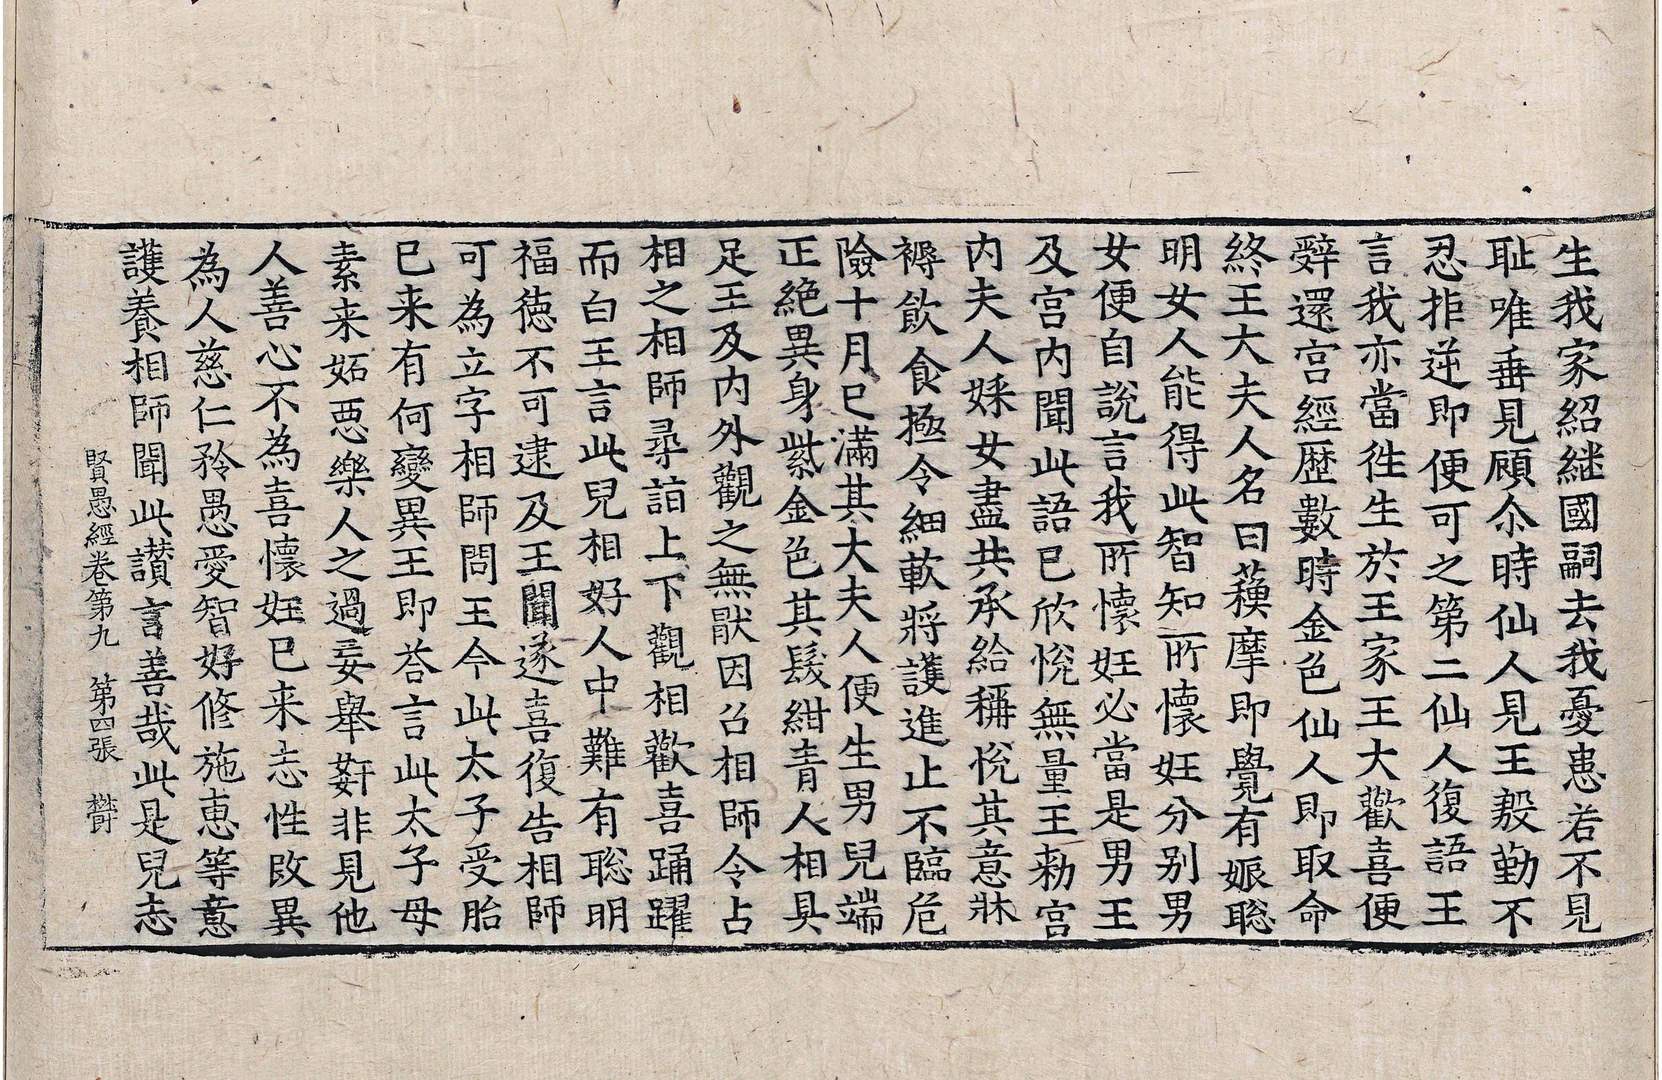 生我家紹継國嗣去我憂患若不見
耻唯垂見顧尒時仙人見王殷勤不
忍拒逆即便可之第二仙人復語王
言我亦當徃生於王家王大歡喜便
辤還宫經歴數時金色仙人即取命
終王大夫人名曰蘓摩即覺有娠聡
明女人能得此智知所懷妊分別男
女便自說言我所懷妊必當是男王
及宫内聞此語已欣悅無量王勑宫
内夫人婇女盡共承給稱悅其意牀
褥飲食極令細軟將護進止不臨危
險十月已滿其大夫人便生男兒端
正絶異身紫金色其髮紺青人相具
足王及内外觀之無猒因召相師令占
相之相師尋詣上下觀相歡喜踊躍
而白王言此兒相好人中難有聡明
福徳不可逮及王聞遂喜復告相師
可為立字相師問王今此太子受胎
已来有何變異王即荅言此太子母
素来妬惡樂人之過妄舉姧非見他
人善心不為喜懷妊已来志性改異
為人慈仁矜愚愛智好修施恵等意
護養相師聞此讃言善哉此是兒志
賢愚經卷第九　第四張　欝